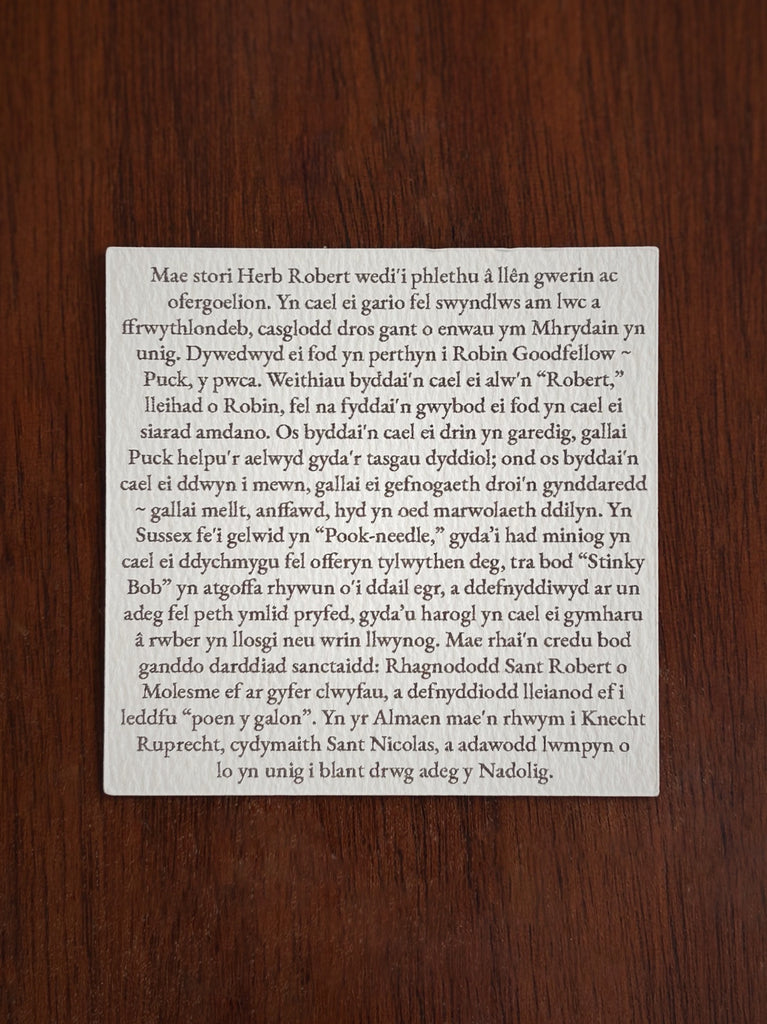 Mae stori Herb Robert wedi'i phlethu â llên gwerin ac
ofergoelion. Yn cael ei gario fel swyndlws am lwc a
ffrwythlondeb, casglodd dros gant o enwau ym Mhrydain yn
unig. Dywedwyd ei fod yn perthyn i Robin Goodfellow ~
Puck, y pwca. Weithiau byddai'n cael ei alw'n “Robert,”
lleihad o Robin, fel na fyddai'n gwybod ei fod yn cael ei
siarad amdano. Os byddai'n cael ei drin yn garedig, gallai
Puck helpu'r aelwyd gyda'r tasgau dyddiol; ond os byddai'n
cael ei ddwyn i mewn, gallai ei gefnogaeth droi'n gynddaredd
~ gallai mellt, anffawd, hyd yn oed marwolaeth ddilyn. Yn
Sussex fe'i gelwid yn “Pook-needle,” gyda’i had miniog yn
cael ei ddychmygu fel offeryn tylwythen deg, tra bod “Stinky
Bob” yn atgoffa rhywun o'i ddail egr, a ddefnyddiwyd ar un
adeg fel peth ymlid pryfed, gyda’u harogl yn cael ei gymharu
â rwber yn llosgi neu wrin llwynog. Mae rhai'n credu bod
ganddo darddiad sanctaidd: Rhagnododd Sant Robert o
Molesme ef ar gyfer clwyfau, a defnyddiodd lleianod ef i
leddfu “poen y galon”. Yn yr Almaen mae'n rhwym i Knecht
Ruprecht, cydymaith Sant Nicolas, a adawodd lwmpyn o
lo yn unig i blant drwg adeg y Nadolig.